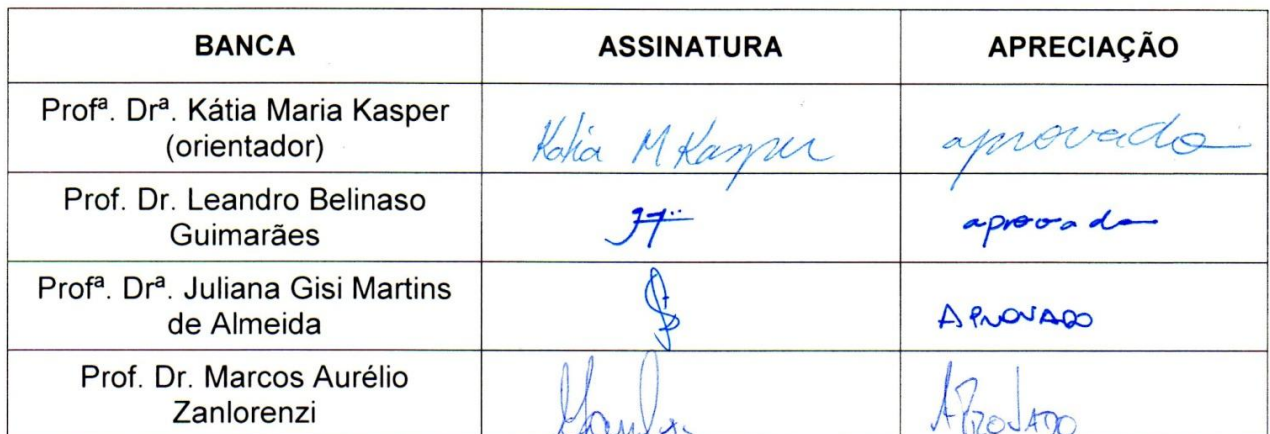 BANCA ASSINATURA APRECIAÇÃO
Profª. Drª. Kátia Maria Kasper
(orientador)
Katia M Kasper aprovado
Prof. Dr. Leandro Belinaso
Guimarães
aprovado
Profª. Drª. Juliana Gisi Martins
de Almeida
APROVADO
Prof. Dr. Marcos Aurélio
Zanlorenzi
APROVADO